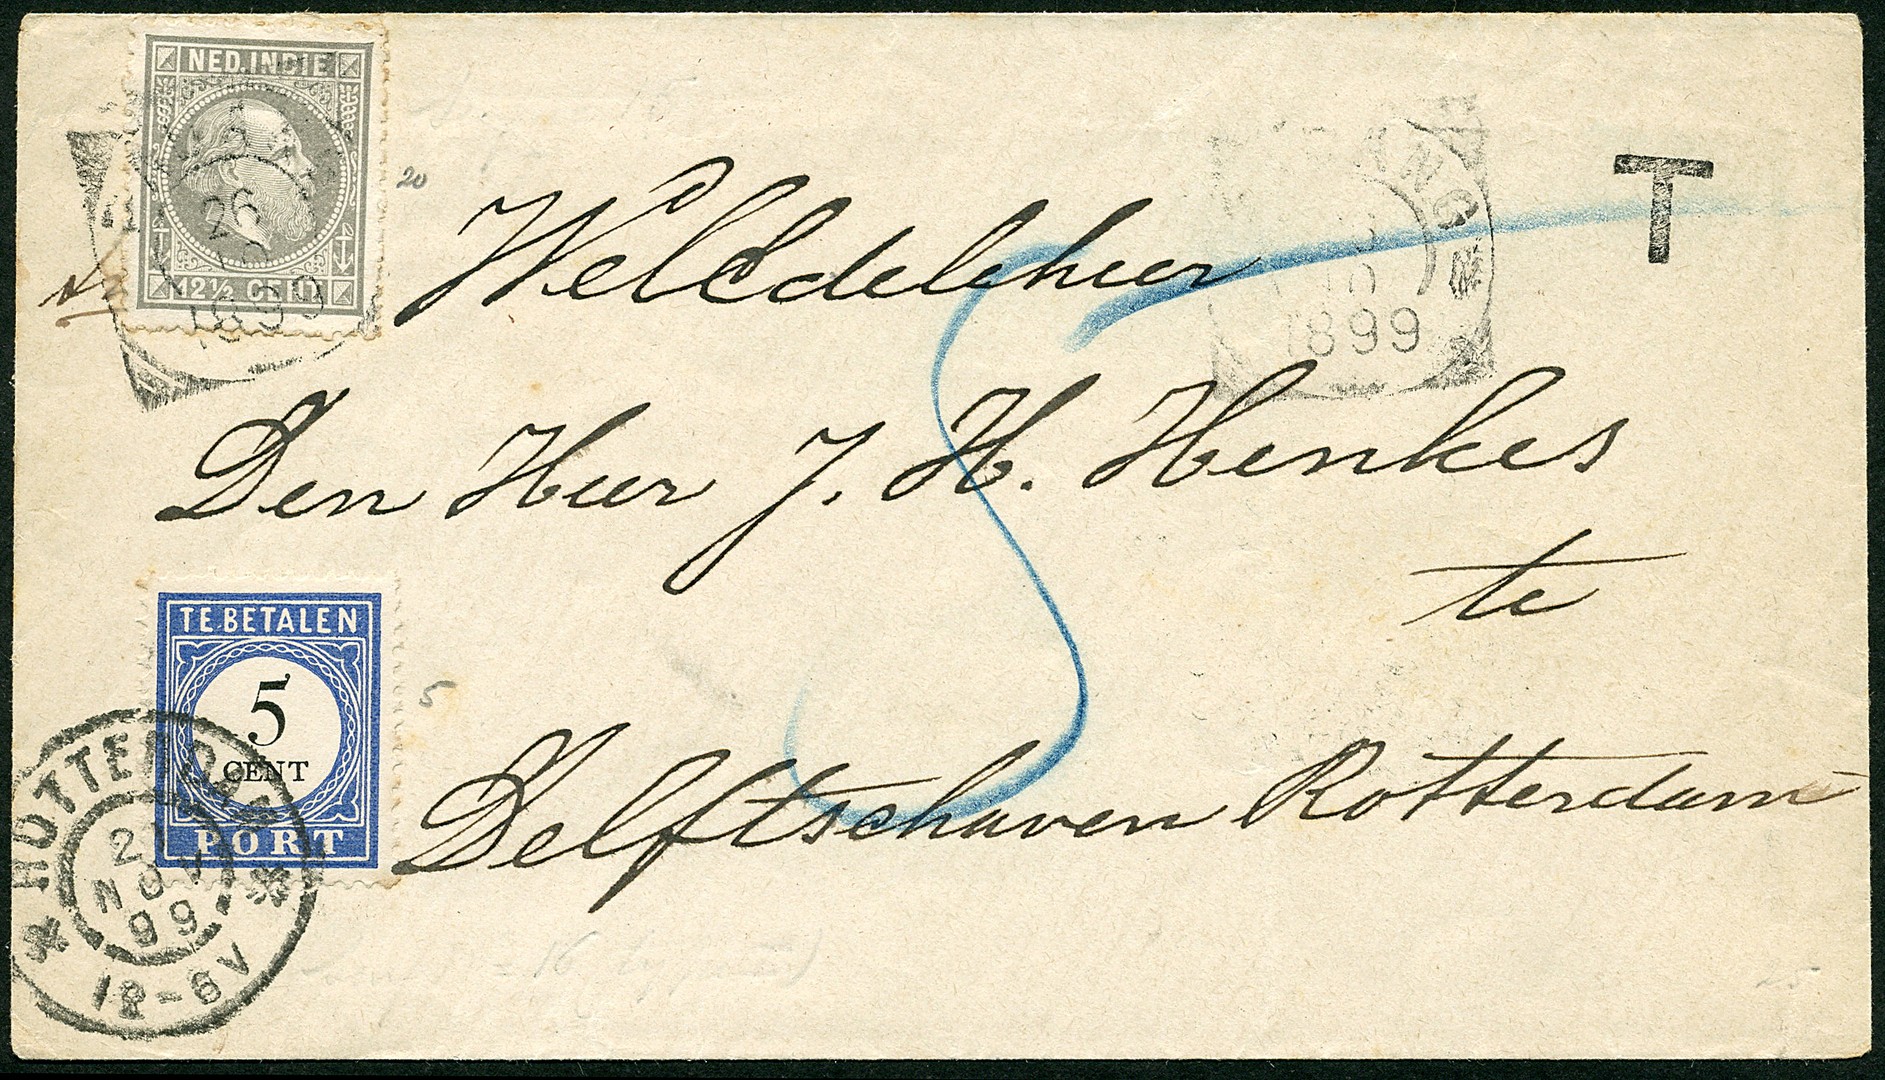 NED. INDIE
12½ CENT
26
1899
20
T
1899
WelEdeleheer
Den Heer J. H. Henkes
te
Delftschaven Rotterdam
TE BETALEN
5
CENT
PORT
5
ROTTERDAM
NOV
99
12-6V